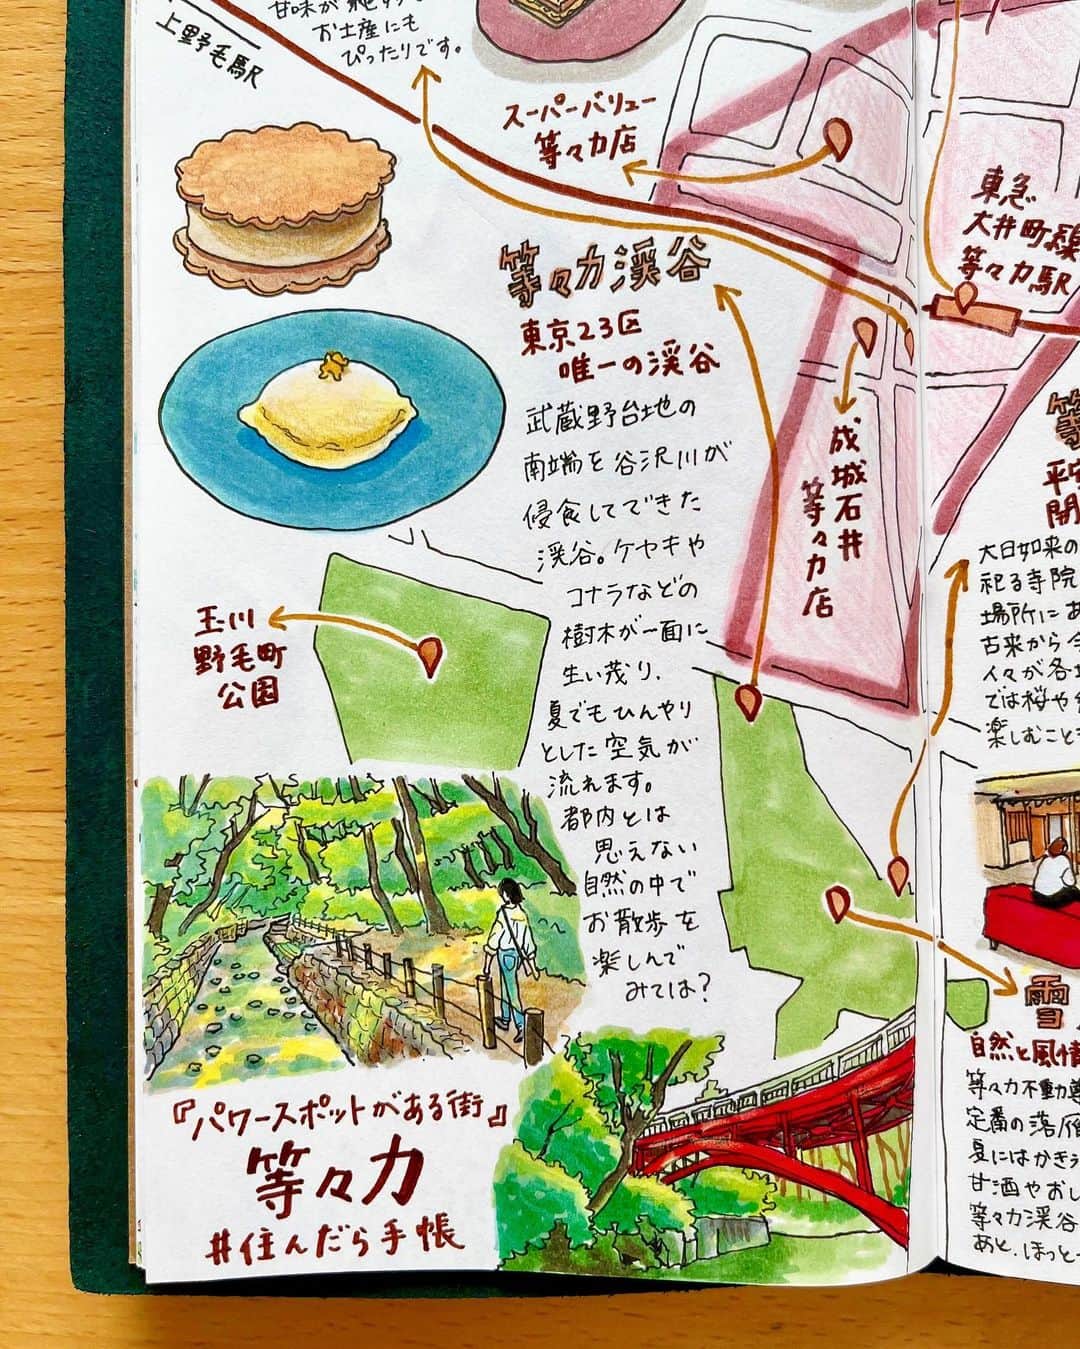 お土産にも
ぴったりです。
上野毛駅
スーパーバリュー
等々力店
東急
大井町線
等々力駅
等々力渓谷
東京23区
唯一の渓谷
武蔵野台地の
南端を谷沢川が
侵食してできた
渓谷。ケヤキや
コナラなどの
樹木が一面に
生い茂り、
夏でもひんやり
とした空気が
流れます。
都内とは
思えない
自然の中で
お散歩を
楽しんで
みては?
成城石井
等々力店
玉川
野毛町
公園
『パワースポットがある街』
等々力
#住んだら手帳
等
平安
開
大日如来の
祀る寺院
場所にあ
古来から
人々が各
では桜や
楽しむこと
雪
自然と風情
等々力不動尊
定番の落雁
夏にはかき
甘酒やおし
等々力渓谷
あと、ほっと